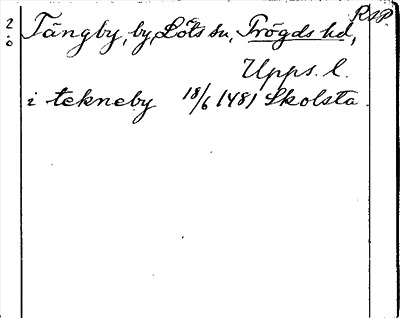 RAP.
2:0 Tängby, by, Löts sn, Trögds hd,
Upps. l.
i tekneby 18/6 1481 Skolsta.